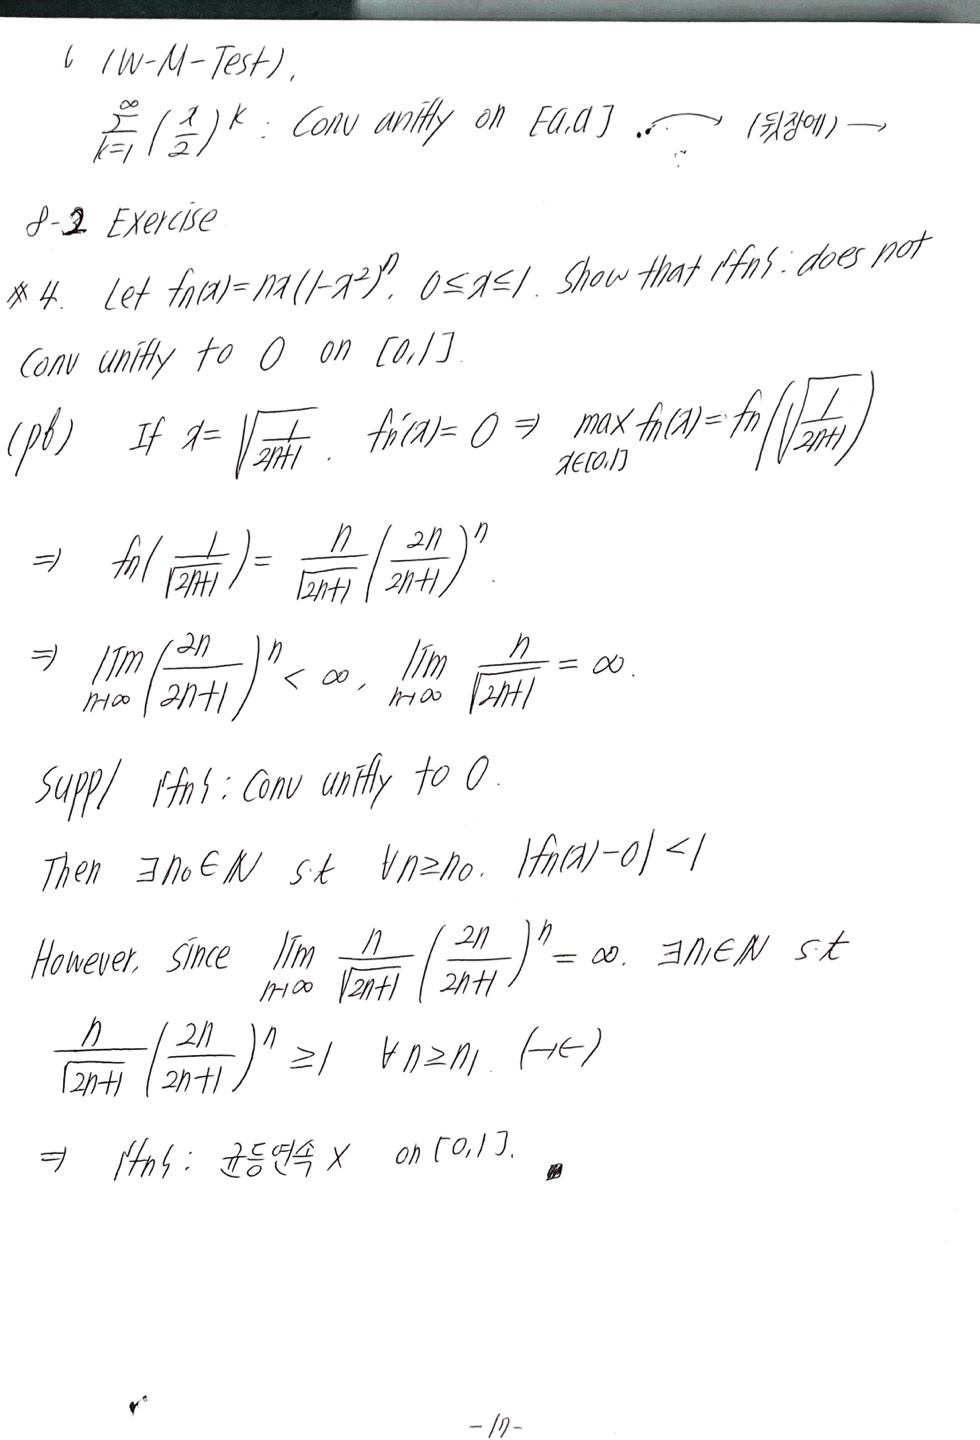 (W-M-Test),
∑_{k=1}^{∞} (x/2)^k : Conv unifly on [-a,a] (뒷장에) →
8-2 Exercise
※ 4. Let fn(x)=nx(1-x²)ⁿ, 0≤x≤1. Show that {fn}: does not
Conv unifly to 0 on [0,1].
(pf) If x=√(1/(2n+1)), fn'(x)=0 ⇒ max_{x∈[0,1]} fn(x)=fn(√(1/(2n+1)))
⇒ fn(1/√(2n+1)) = n/√(2n+1) (2n/(2n+1))ⁿ.
⇒ lim_{n→∞} (2n/(2n+1))ⁿ < ∞, lim_{n→∞} n/√(2n+1) = ∞.
Supp/ {fn}: Conv unifly to 0.
Then ∃n₀∈ℕ s.t ∀n≥n₀, |fn(x)-0|<1
However, since lim_{n→∞} n/√(2n+1) (2n/(2n+1))ⁿ = ∞. ∃n₁∈ℕ s.t
n/√(2n+1) (2n/(2n+1))ⁿ ≥1 ∀n≥n₁ (→←)
⇒ {fn}: 균등연속 X on [0,1].
-17-